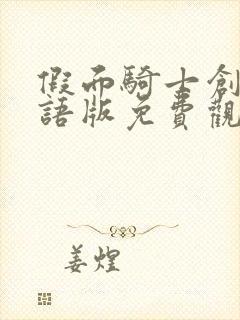 假面騎士創
語版免費觀
姜煌